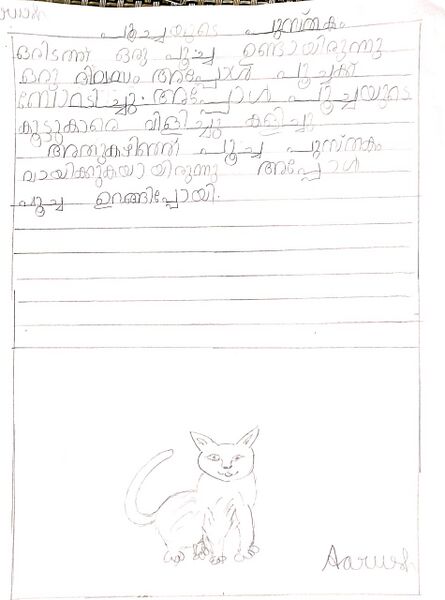 പൂച്ചയുടെ പുസ്തകം
ഒരിടത്ത് ഒരു പൂച്ച ഉണ്ടായിരുന്നു
ഒരു ദിവസം അപ്പോൾ പൂച്ചക്ക്
ബോറടിച്ചു. അപ്പോൾ പൂച്ചയുടെ
കൂട്ടുകാരെ വിളിച്ചു കളിച്ചു
അതുകഴിഞ്ഞ് പൂച്ച പുസ്തകം
വായിക്കുകയായിരുന്നു അപ്പോൾ
പൂച്ച ഉറങ്ങിപ്പോയി.
Aarush